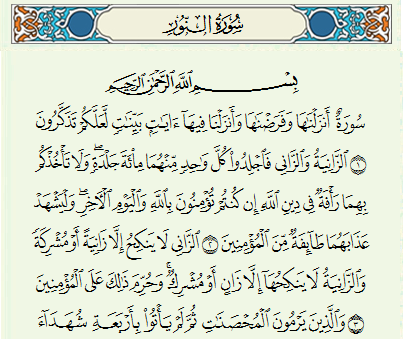 سُورَةُ النُّورِ
بِسْمِ ٱللَّهِ ٱلرَّحْمَٰنِ ٱلرَّحِيمِ
سُورَةٌ أَنزَلْنَٰهَا وَفَرَضْنَٰهَا وَأَنزَلْنَا فِيهَآ ءَايَٰتٍۭ بَيِّنَٰتٍ لَّعَلَّكُمْ تَذَكَّرُونَ
١ ٱلزَّانِيَةُ وَٱلزَّانِى فَٱجْلِدُوا۟ كُلَّ وَٰحِدٍ مِّنْهُمَا مِا۟ئَةَ جَلْدَةٍ ۖ وَلَا تَأْخُذْكُم
بِهِمَا رَأْفَةٌ فِى دِينِ ٱللَّهِ إِن كُنتُمْ تُؤْمِنُونَ بِٱللَّهِ وَٱلْيَوْمِ ٱلْءَاخِرِ ۖ وَلْيَشْهَدْ
عَذَابَهُمَا طَآئِفَةٌ مِّنَ ٱلْمُؤْمِنِينَ ٢ ٱلزَّانِى لَا يَنكِحُ إِلَّا زَانِيَةً أَوْ مُشْرِكَةً
وَٱلزَّانِيَةُ لَا يَنكِحُهَآ إِلَّا زَانٍ أَوْ مُشْرِكٌ ۚ وَحُرِّمَ ذَٰلِكَ عَلَى ٱلْمُؤْمِنِينَ
٣ وَٱلَّذِينَ يَرْمُونَ ٱلْمُحْصَنَٰتِ ثُمَّ لَمْ يَأْتُوا۟ بِأَرْبَعَةِ شُهَدَآءَ